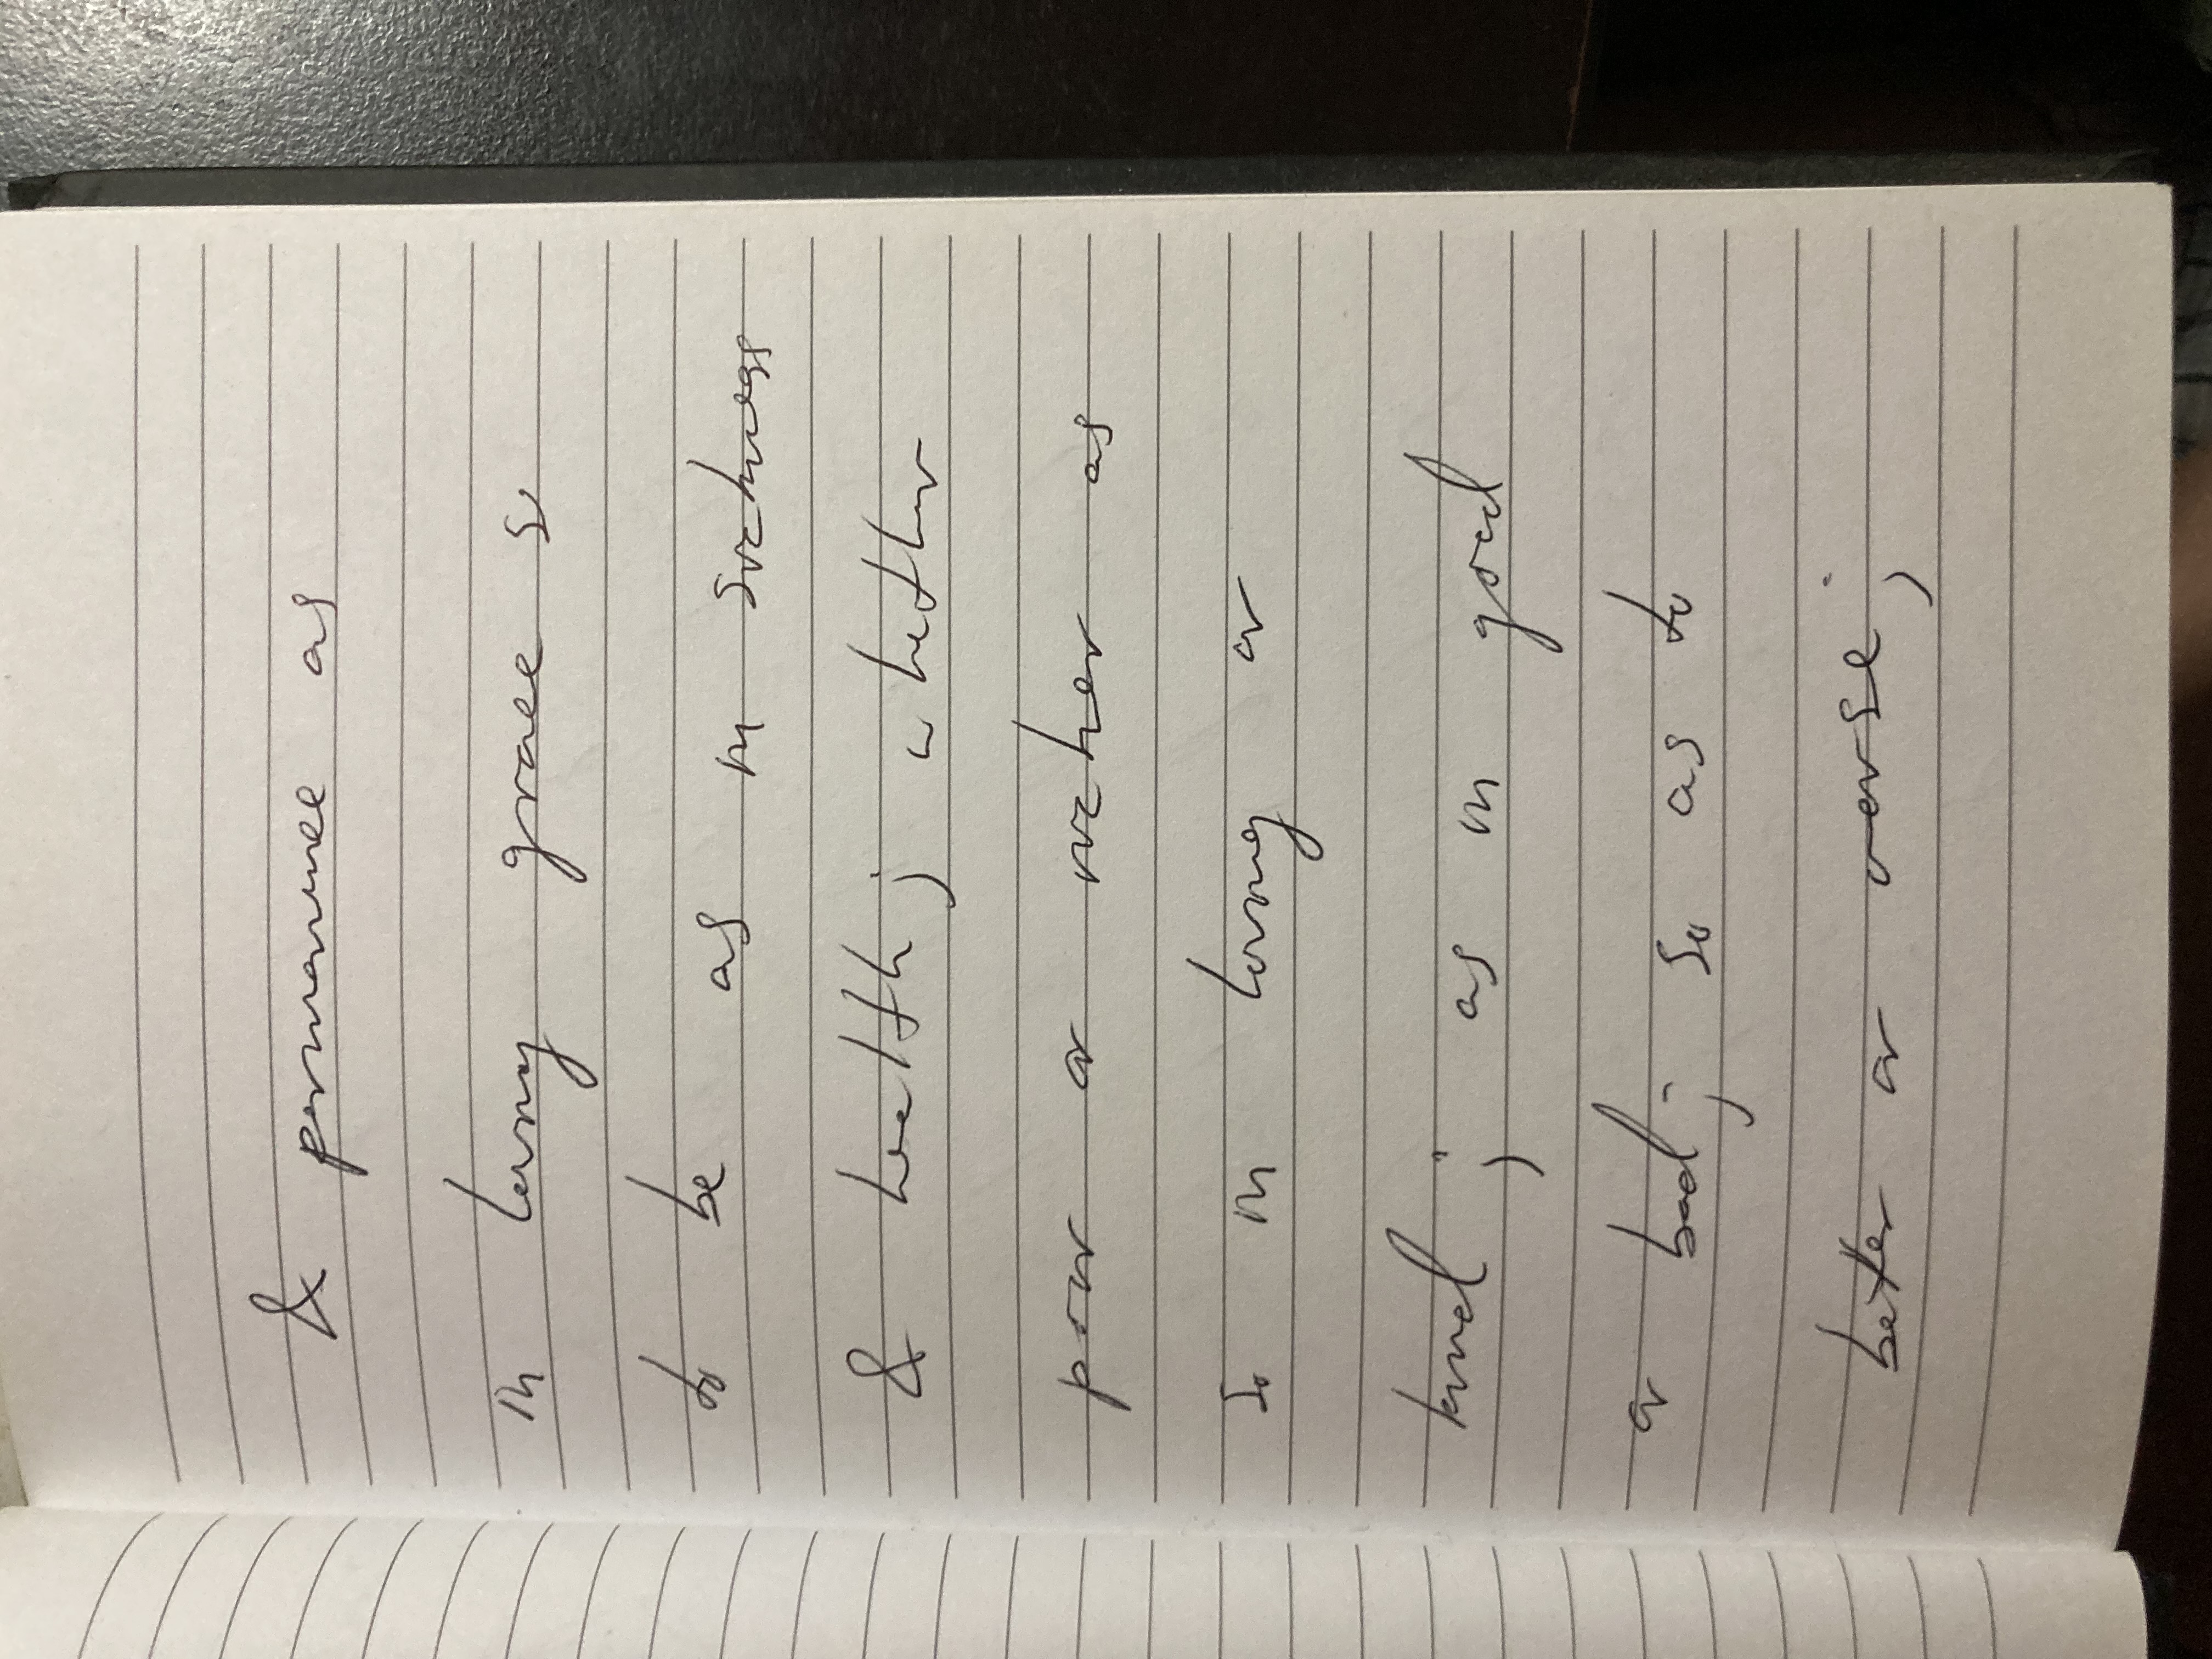 & permanence as
in loving grace so
to be as in sickness
& health; whether
poor or richer as
so in loving or
kind; as in good
or bad; so as to
better or worse;